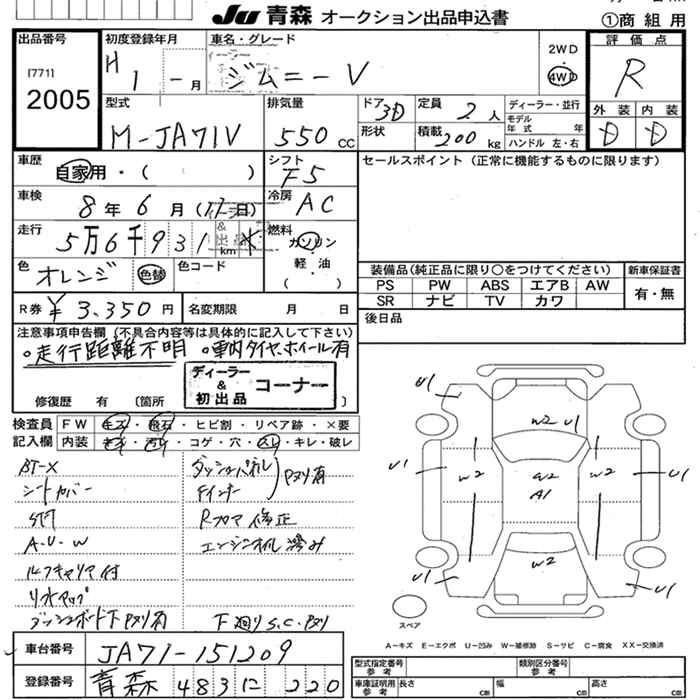 JU 青森 オークション出品申込書
①商 組 用
出品番号
[771]
2005
初度登録年月
H1 - 月
車名・グレード
ジムニー V
2WD
4WD
評価点
R
型式
M-JA71V
排気量
550 CC
ドア 3D
形状
定員 2 人
積載 200 kg
ディーラー・並行
モデル
年式 年
ハンドル 左・右
外装 内装
D D
車歴
自家用・( )
シフト
F5
セールスポイント(正常に機能するものに限ります)
車検
8年 6月
冷房
AC
走行
5万6千931 km
燃料
ガソリン
・
軽・油
( )
色
オレンジ 色替
色コード
装備品(純正品に限り○をつけてください)
新車保証書
PS PW ABS エアB AW
SR ナビ TV カワ
有・無
R券 ¥3,350円
名変期限 月 日
後日品
注意事項申告欄(不具合内容等は具体的に記入して下さい)
○走行距離不明 ○車内タイヤ、ホイール有
ディーラー
&
初出品
コーナー
修復歴 有 (箇所
検査員
記入欄
FW キズ・飛石・ヒビ割・リペア跡・×要
内装 キズ・汚れ・コゲ・穴・スレ・キレ・破レ
BT-X
シートカバー
A・U・W
ルーフキャリア付
ダッシュボード下 Pヌリ有
ダッシュパネル
Fインナー
Pヌリ有
Rフロア 修正
エンジンオイル 滲み
下廻りS.C.Pヌリ
U1
U1
W2 U1
U1
W2
W2
A1
W2
U1
W2
U1
U1
スペア
A-キズ E-エクボ U-凹み W-補修跡 S-サビ C-腐食 XX-交換済
車台番号
JA71-151209
登録番号
青森 483に 220
型式指定番号
参考
類別区分番号
参考
車庫証明用
参考
長さ cm
幅 cm
高さ cm